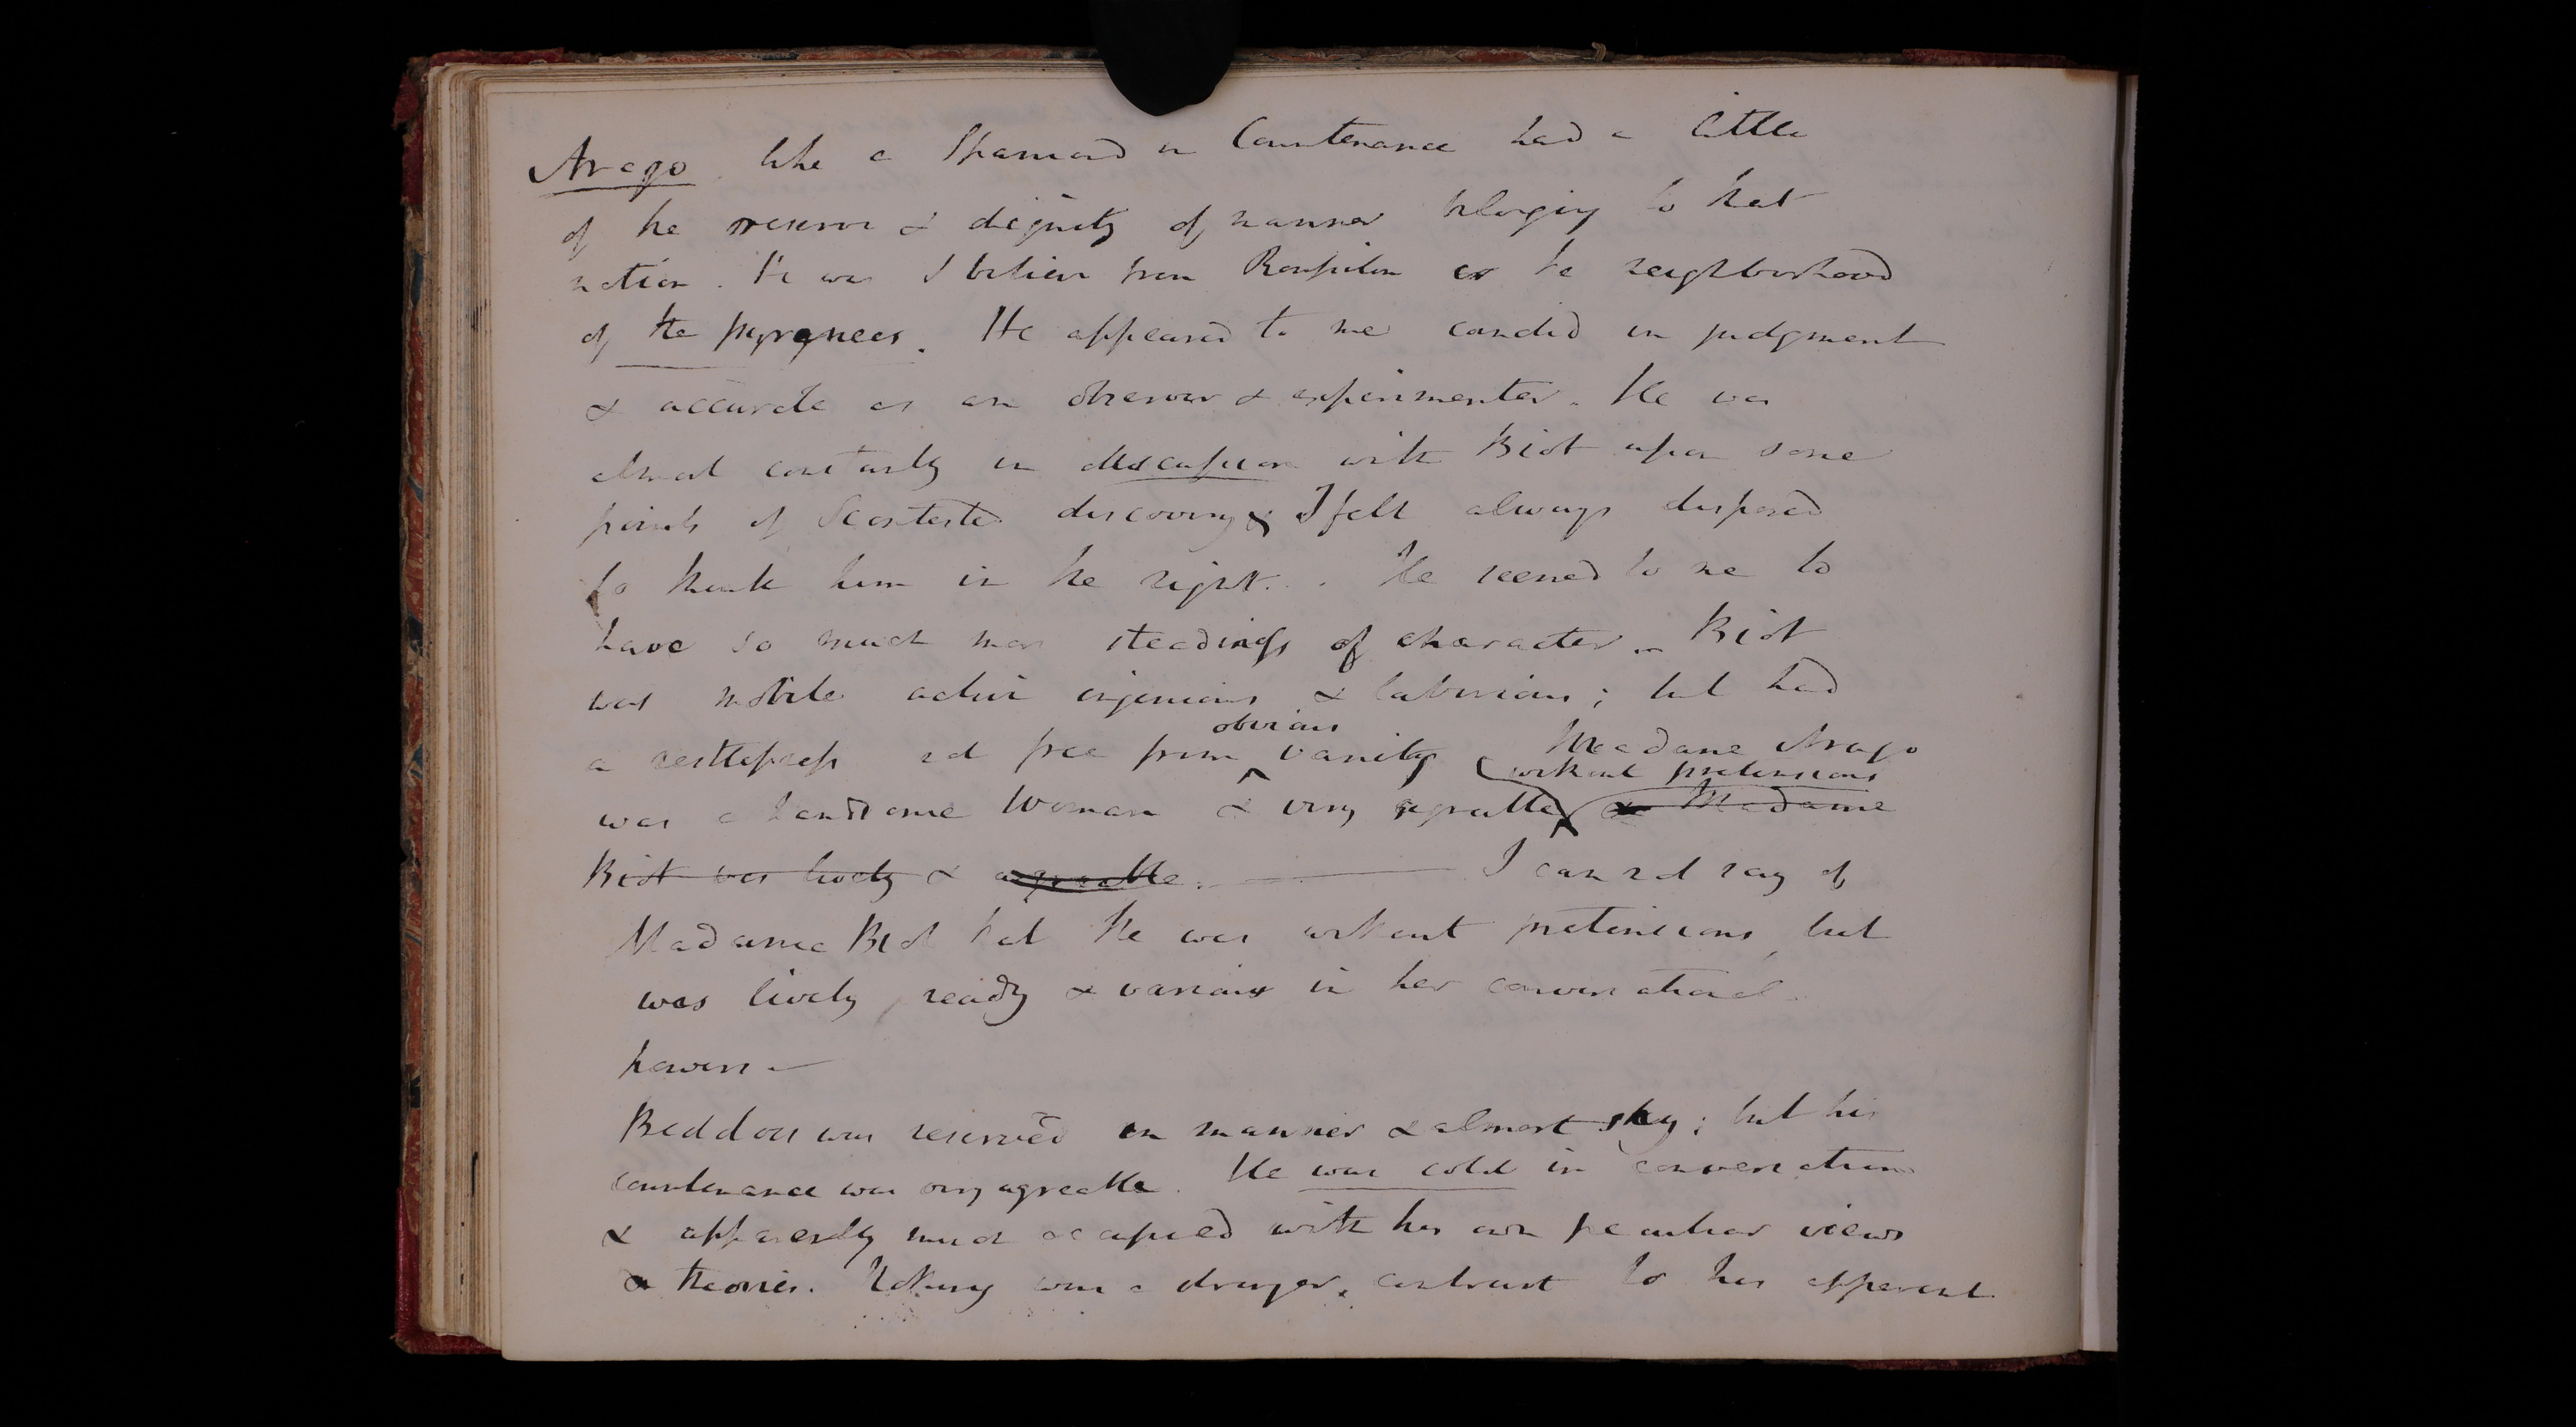 Arago like a Spaniard in Countenance had a little
of the reserve & dignity of manner belonging to that
nation. He was I believe from Rousillon or the neighborhood
of the pyrenees. He appeared to me candid in judgment
& accurate as an observer & experimenter. He was
almost constantly in discussion with Biot upon some
points of contested discovery & I felt always disposed
to think him in the right. He seemed to me to
have so much more steadiness of character. Biot
was mobile active ingenious & laborious; but had
obvious
a restlessness not free from vanity Madame Arago
without pretensions
was a handsome Woman & very agreeable & Madame
Biot was lively & agreeable. I can not say of
Madame Biot that she was without pretensions, but
was lively, ready & various in her conversational
powers
Beddoes was reserved in manner & almost shy; but his
countenance was very agreeable. He was cold in conversation
& apparently much occupied with his own peculiar views
& theories. Nothing was a stronger contrast to his apparent